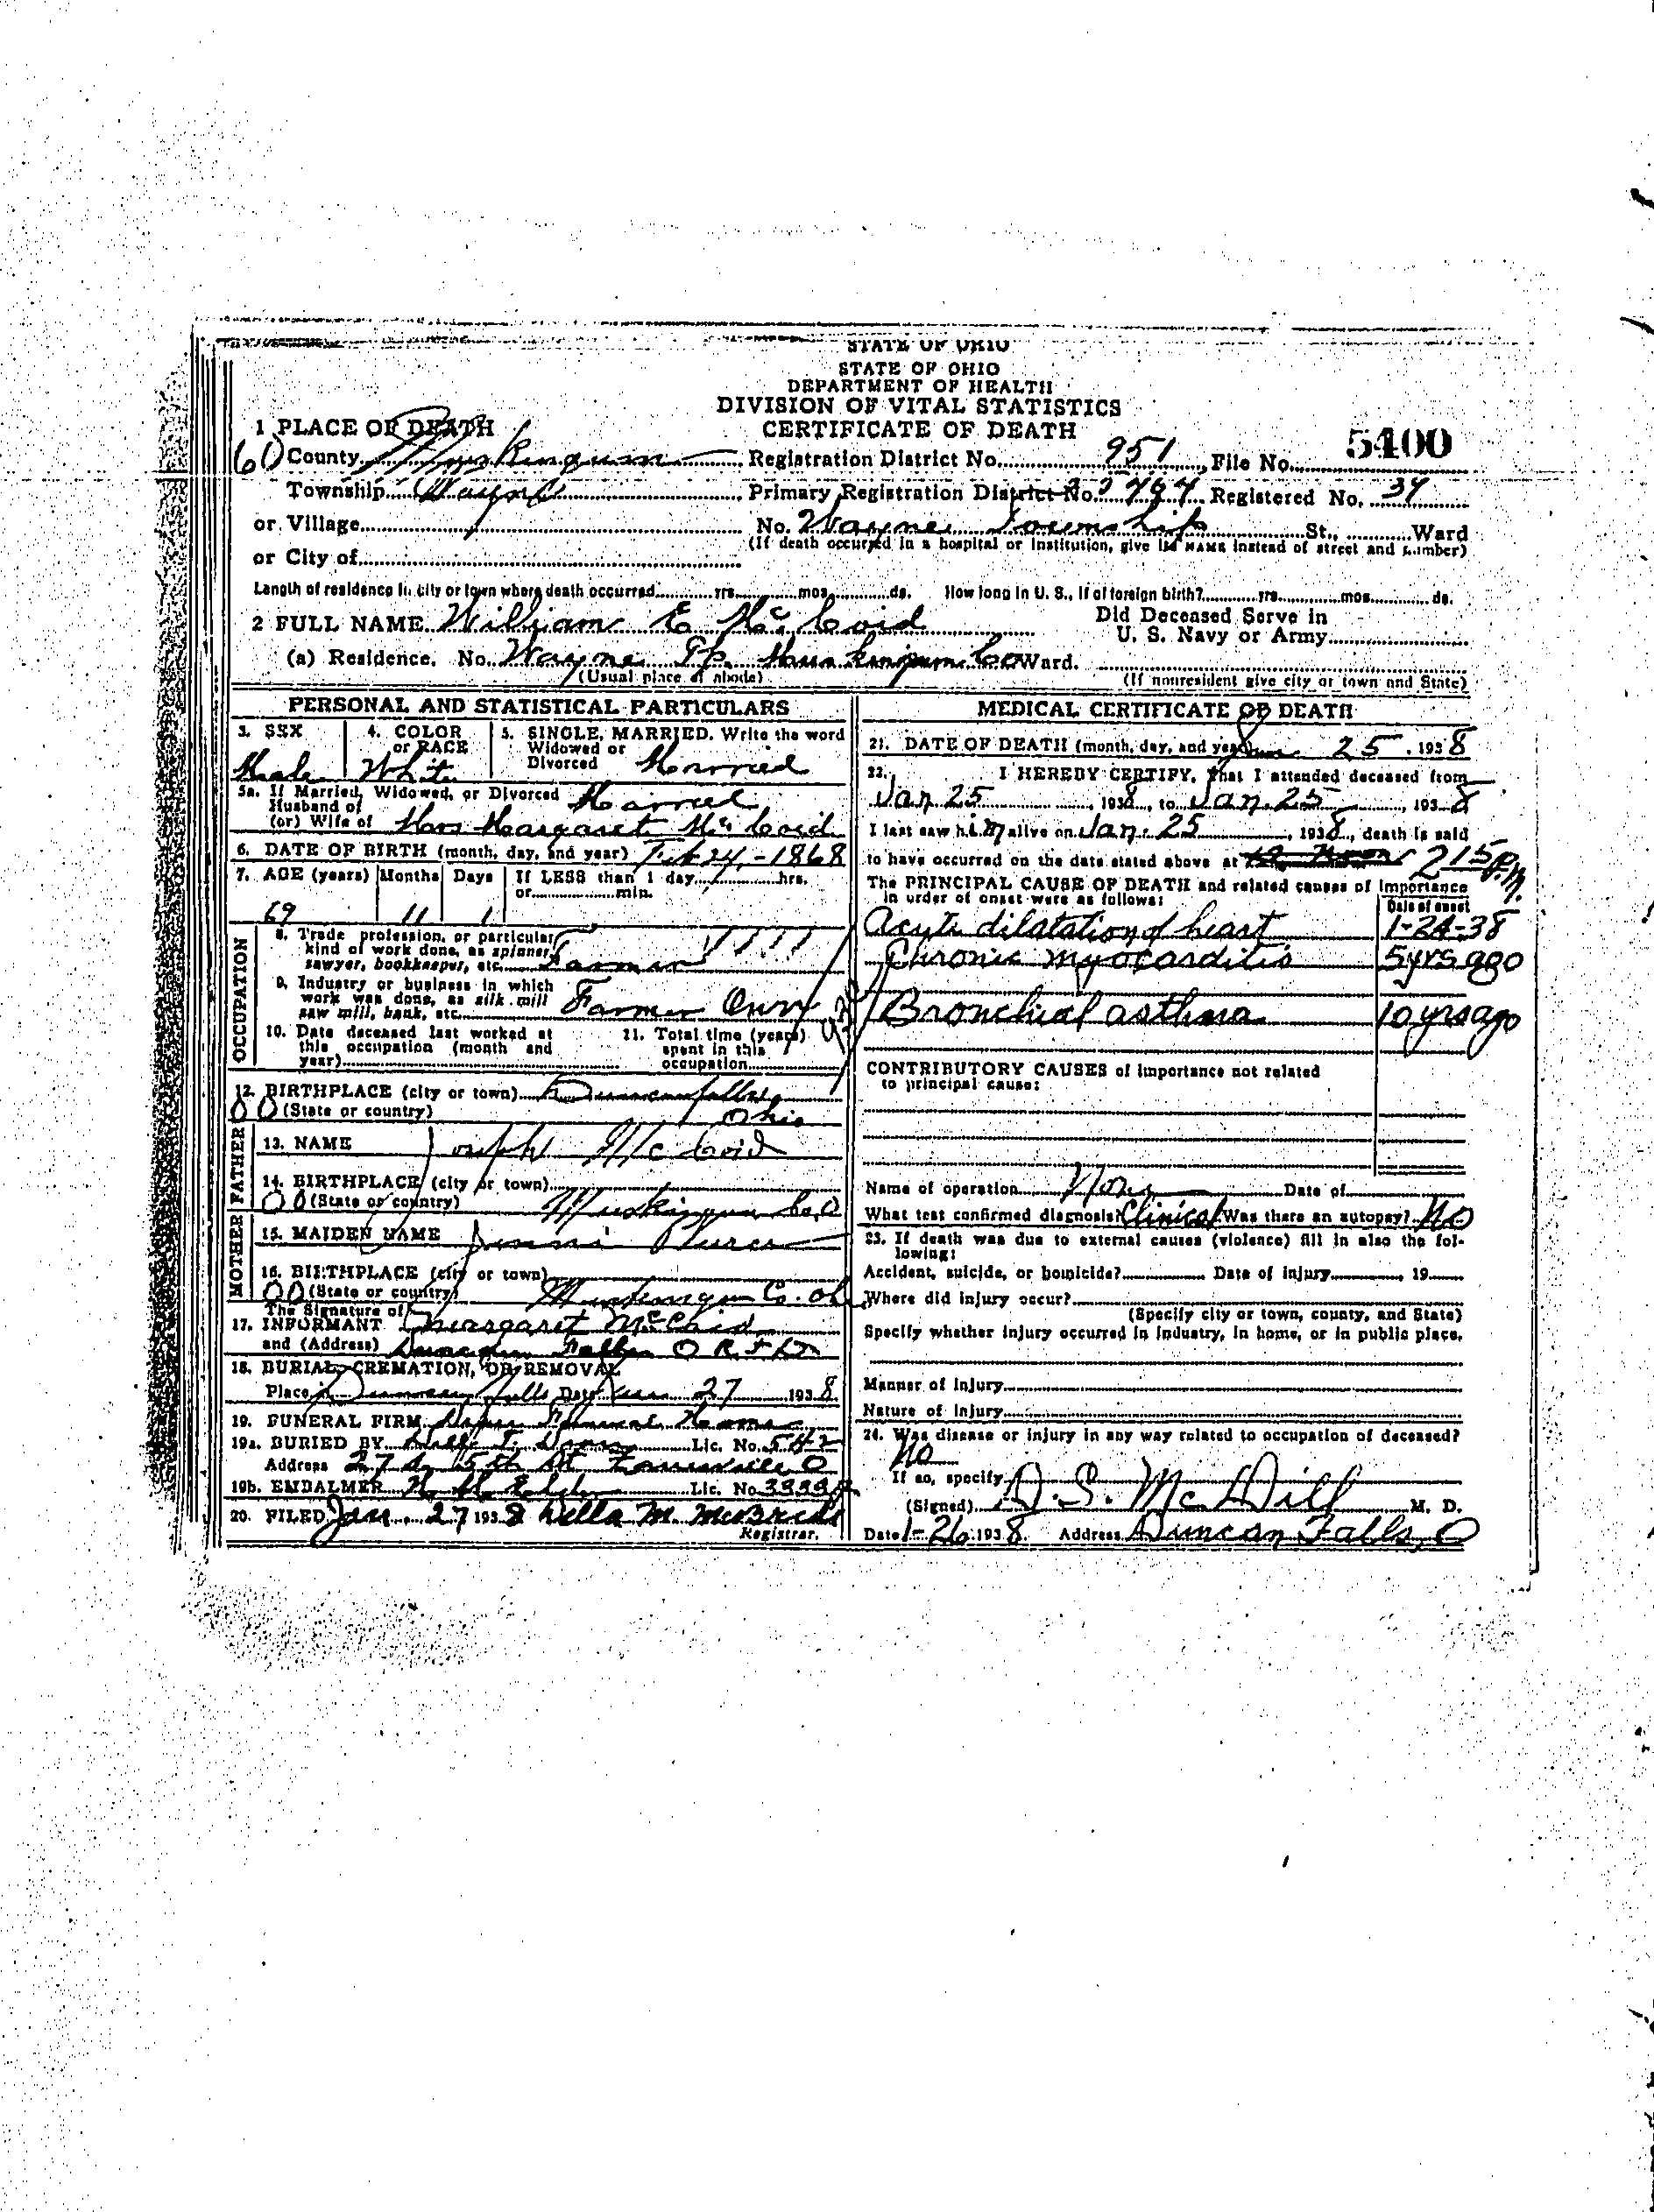 STATE OF OHIO
STATE OF OHIO
DEPARTMENT OF HEALTH
DIVISION OF VITAL STATISTICS
CERTIFICATE OF DEATH
1 PLACE OF DEATH
60 County Muskingum Registration District No. 951 File No. 5400
Township Wayne Primary Registration District No. Registered No. 34
or Village No. Wayne Township St., Ward
(If death occurred in a hospital or institution, give its NAME instead of street and number)
or City of
Length of residence in city or town where death occurred yrs. mos. ds. How long in U. S., if of foreign birth? yrs. mos. ds.
2 FULL NAME William E McCoid Did Deceased Serve in
U. S. Navy or Army
(a) Residence. No. Wayne Tp. Muskingum Co Ward.
(Usual place of abode) (If nonresident give city or town and State)
PERSONAL AND STATISTICAL PARTICULARS
3. SEX 4. COLOR or RACE 5. SINGLE, MARRIED. Write the word
Widowed or
Divorced
Male White Married
5a. If Married, Widowed, or Divorced Married
Husband of
(or) Wife of Mrs Margaret McCoid
6. DATE OF BIRTH (month, day, and year) Feb 24, - 1868
7. AGE (years) Months Days If LESS than 1 day, hrs.
or min.
69 11 1
OCCUPATION
8. Trade profession, or particular
kind of work done, as spinner,
sawyer, bookkeeper, etc. Farmer
9. Industry or business in which
work was done, as silk mill
saw mill, bank, etc. Farmer Own
10. Date deceased last worked at
this occupation (month and
year)
11. Total time (years)
spent in this
occupation
12. BIRTHPLACE (city or town) Duncan falls
00 (State or country) Ohio
FATHER
13. NAME Joseph McCoid
14. BIRTHPLACE (city or town)
00 (State or country) Muskingum Co. O
MOTHER
15. MAIDEN NAME
16. BIRTHPLACE (city or town)
00 (State or country) Muskingum Co. Oh
The Signature of
17. INFORMANT Margaret McCoid
and (Address) Duncan Falls O R.F.D.
18. BURIAL, CREMATION, OR REMOVAL
Place Duncan Falls Date Jan 27 1938
19. FUNERAL FIRM Funeral Home
19a. BURIED BY Lic. No. 542
Address 27 5th St Zanesville O
19b. EMBALMER Lic. No. 3999
20. FILED Jan. 27 1938 Della M. McBride
Registrar.
MEDICAL CERTIFICATE OF DEATH
21. DATE OF DEATH (month, day, and year) Jan 25, 1938
22. I HEREBY CERTIFY, That I attended deceased from
Jan 25, 1938, to Jan. 25, 1938
I last saw him alive on Jan. 25, 1938, death is said
to have occurred on the date stated above at 215 P.M.
The PRINCIPAL CAUSE OF DEATH and related causes of importance
in order of onset were as follows:
Date of onset
Acute dilatation of heart 1-24-38
Chronic myocarditis 5 yrs ago
Bronchial asthma 10 yrs ago
CONTRIBUTORY CAUSES of importance not related
to principal cause:
Name of operation None Date of
What test confirmed diagnosis? Clinical Was there an autopsy? No
23. If death was due to external causes (violence) fill in also the fol-
lowing:
Accident, suicide, or homicide? Date of injury , 19
Where did injury occur?
(Specify city or town, county, and State)
Specify whether injury occurred in industry, in home, or in public place.
Manner of Injury
Nature of Injury
24. Was disease or injury in any way related to occupation of deceased?
No
If so, specify
(Signed) D.S. McDill M. D.
Date 1-26 1938. Address Duncan Falls, O